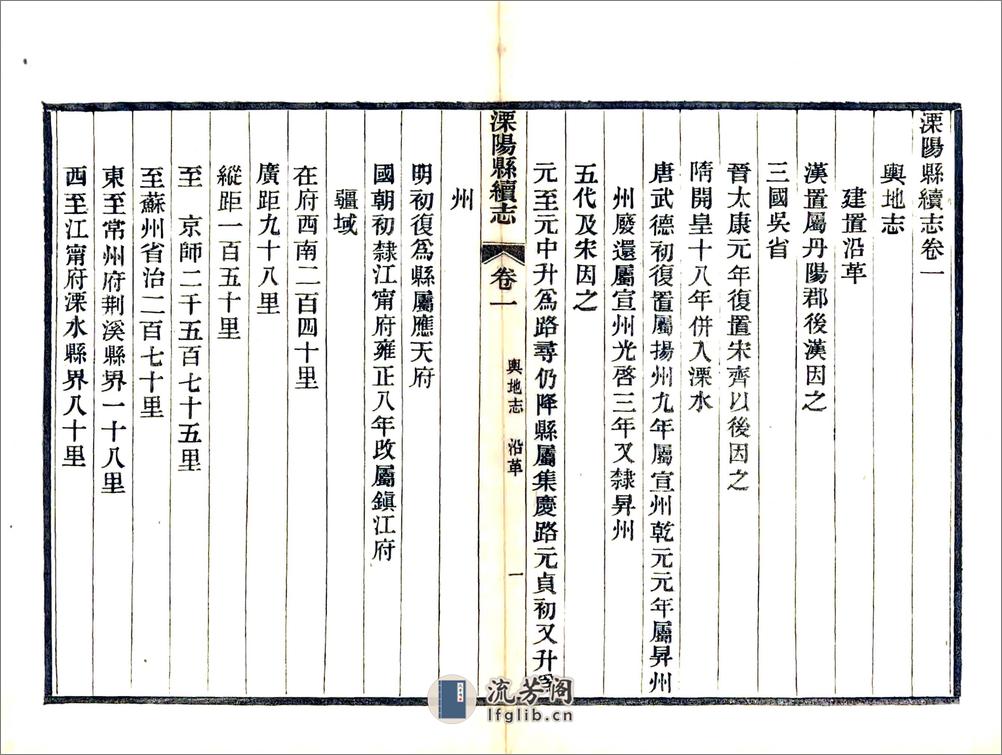 溧陽縣續志卷一
輿地志
建置沿革
漢置屬丹陽郡後漢因之
三國吳省
晉太康元年復置宋齊以後因之
隋開皇十八年併入溧水
唐武德初復置屬揚州九年屬宣州乾元元年屬昇州
州廢還屬宣州光啓三年又隸昇州
五代及宋因之
元至元中升爲路尋仍降縣屬集慶路元貞初又升爲
溧陽縣續志 卷一 輿地志 沿革 一
州
明初復爲縣屬應天府
國朝初隸江甯府雍正八年改屬鎭江府
疆域
在府西南二百四十里
廣距九十八里
縱距一百五十里
至 京師二千五百七十五里
至蘇州省治二百七十里
東至常州府荆溪縣界一十八里
西至江甯府溧水縣界八十里
流芳阁
lfglib.cn